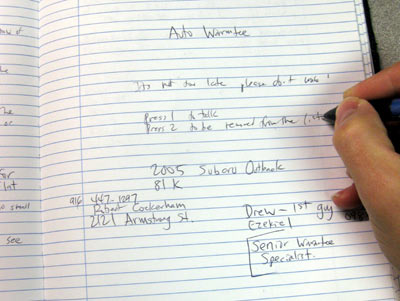 Auto Warantee
It's not too late please don't wait!
Press 1 to talk
Press 2 to be removed from the list
2005 Subaru Outback
81 K
916 447-1297
Robert Cockerham
2121 Armstrong St.
Drew - 1st guy
Ezekiel
Senior Warantee
Specialist.
see